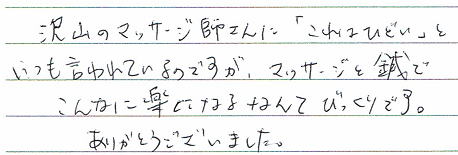 沢山のマッサージ師さんに「これはひどい」と
いつも言われているのですが、マッサージと鍼で
こんなに楽になるなんてびっくりです。
ありがとうございました。